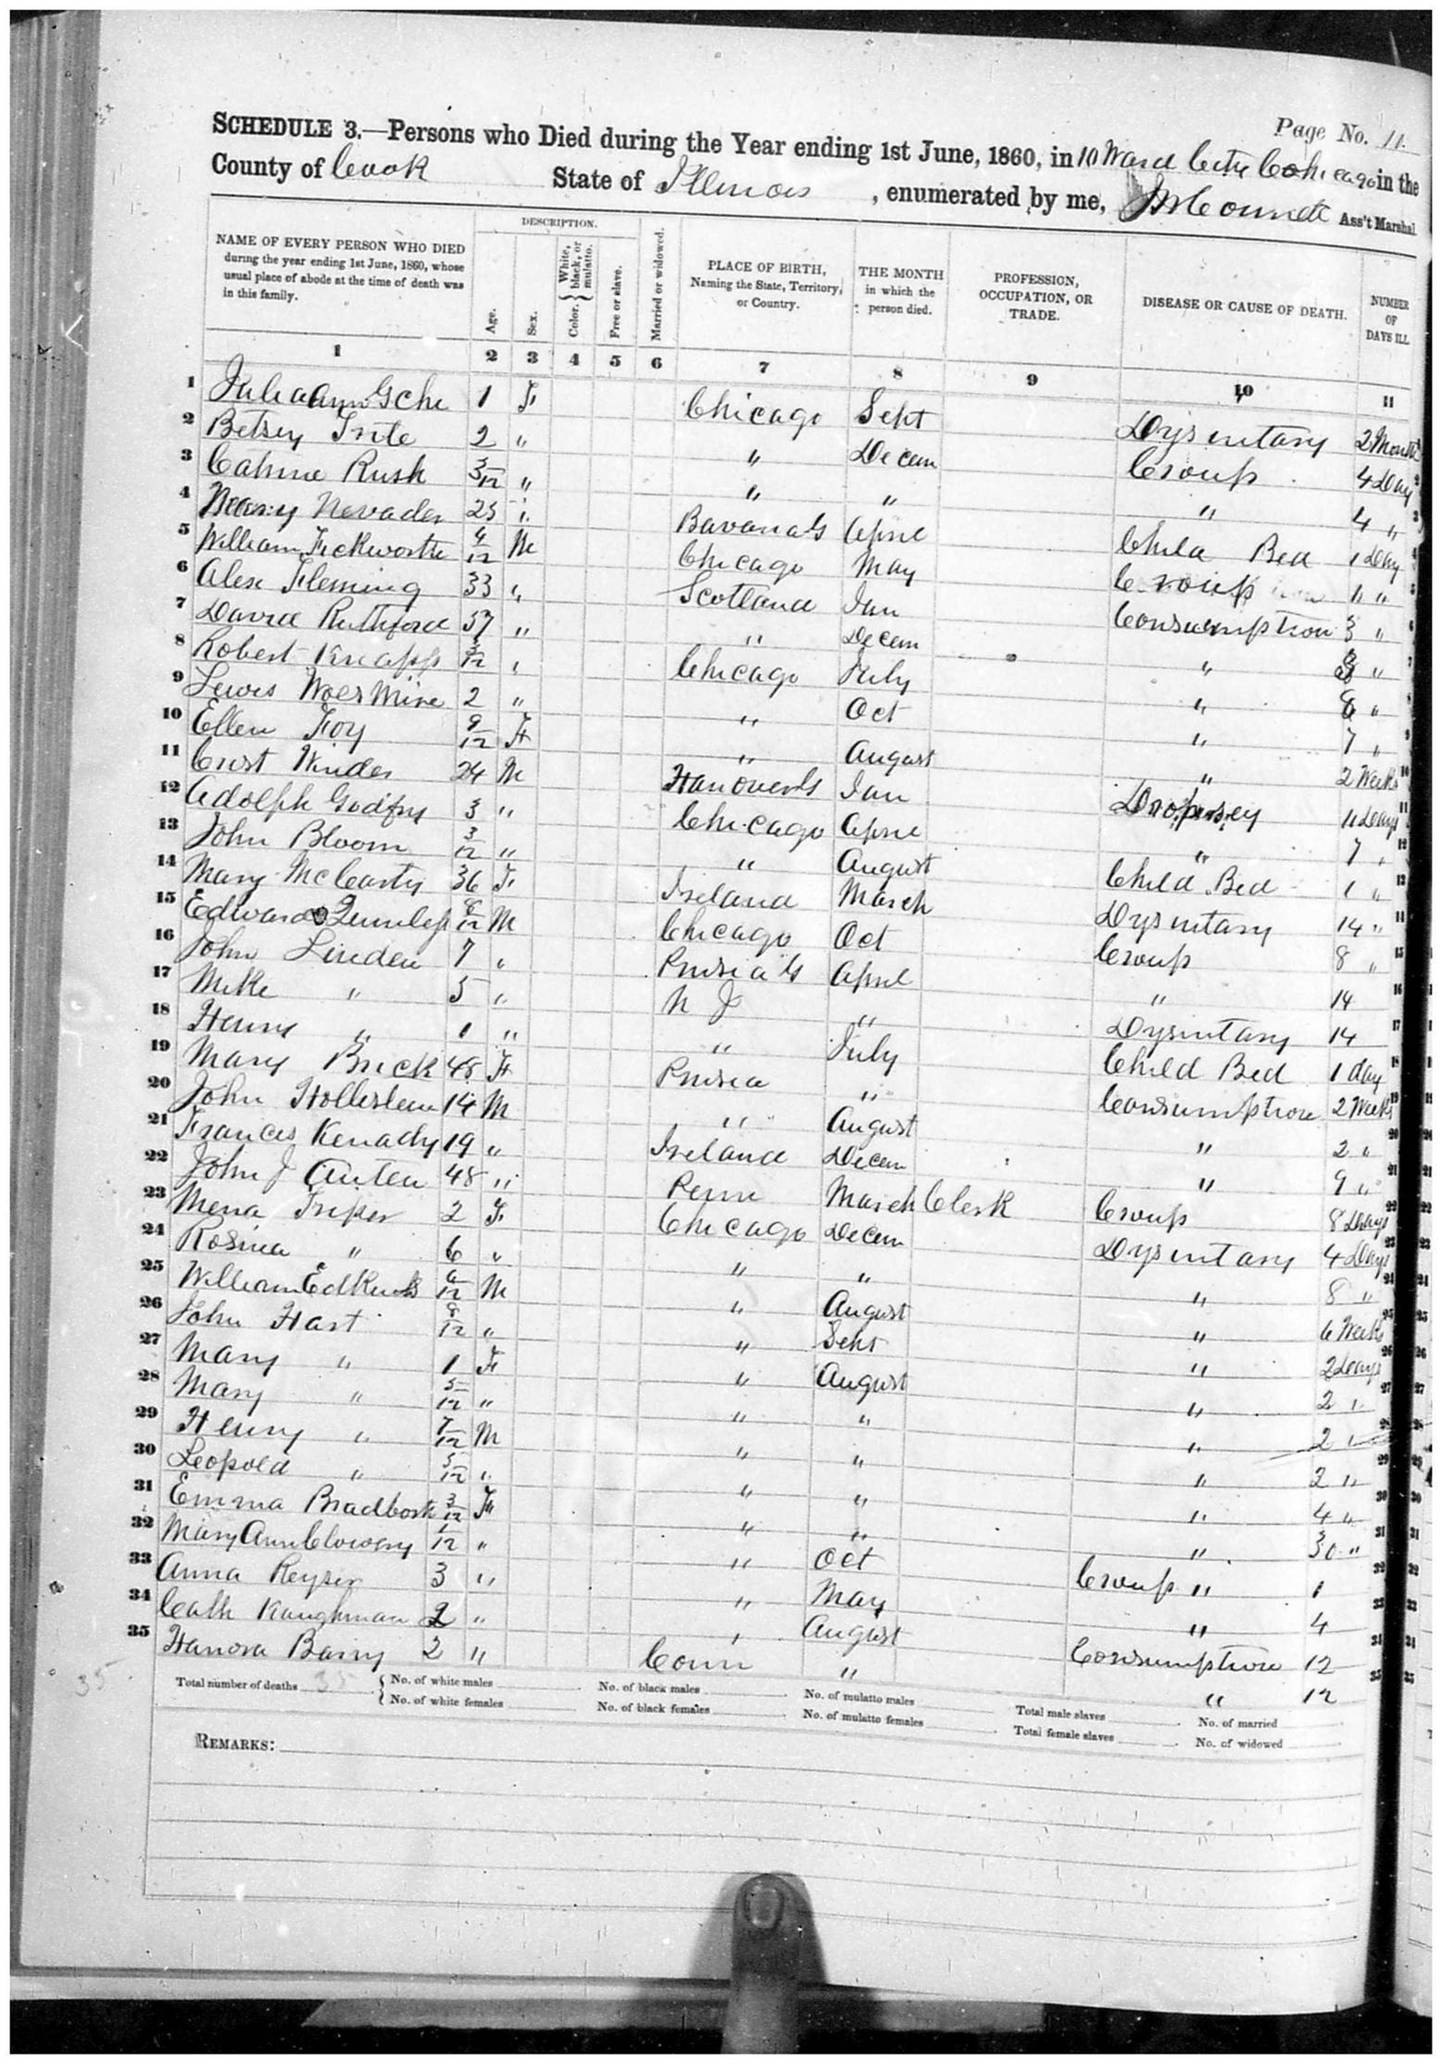 Page No. 11.
SCHEDULE 3.—Persons who Died during the Year ending 1st June, 1860, in 10 Ward City Chicago in the
County of Cook State of Illinois, enumerated by me, Ass't Marshal.
NAME OF EVERY PERSON WHO DIED during the year ending 1st June, 1860, whose usual place of abode at the time of death was in this family.
DESCRIPTION.
Age.
Sex.
Color, { White, black, or mulatto.
Free or slave.
Married or widowed.
PLACE OF BIRTH, Naming the State, Territory, or Country.
THE MONTH in which the person died.
PROFESSION, OCCUPATION, OR TRADE.
DISEASE OR CAUSE OF DEATH.
NUMBER OF DAYS ILL.
1 2 3 4 5 6 7 8 9 10 11
1 Julia Ann 1 F Chicago Sept Dysintary 2 Month
2 Betsey 2 " " Decem Croup 4 Day
3 Rush 3/12 " " " " 4 "
4 Nevader 25 " April Child Bed 1 Day
5 William 9/12 M Chicago May Croup 11 "
6 Alex Fleming 33 " Scotland Jan Consumption 3 "
7 David Ruthford 57 " " Decem " "
8 Robert Knapp 3/12 " Chicago July " "
9 Lewis 2 " " Oct " 7 "
10 Ellen Foy 9/12 F " August " 2 Weeks
11 24 M Jan Dropsey 11 Days
12 Adolph Godfry 3 " Chicago April " 7 "
13 John Bloom 3/12 " " August Child Bed 1 "
14 Mary McCarty 36 F Ireland March Dysintary 14 "
15 Edward 8/12 M Chicago Oct Croup 8 "
16 John Linden 7 " April " 14
17 Mike " 5 " N J " Dysintary 14
18 Henry " 1 " " July Child Bed 1 day
19 Mary Brick 48 F Prusia " Consumption 2 Weeks
20 John 14 M " August " 2 "
21 Frances Kenady 19 " Ireland Decem " 9 "
22 John J 48 " Penn March Clerk Croup 8 Days
23 Mena Triper 2 F Chicago Decem Dysintary 4 Days
24 Rosina " 6 " " " " 8 "
25 William 6/12 M " August " 6 Weeks
26 John Hart 8/12 " " Sept " 2 Days
27 Mary " 1 F " August " 2 "
28 Mary " 5/12 " " " " 2 "
29 Henry " 7/12 M " " " 2 "
30 Leopold " 5/12 " " " " 4 "
31 Emma 3/12 F " " " 30 "
32 Mary Ann 1/12 " " Oct Croup " 1
33 Anna Keyser 3 " " May " 4
34 Cath 2 " " August Consumption 12
35 Hanora Barry 2 " Conn " " 12
Total number of deaths 35 { No. of white males No. of black males No. of mulatto males Total male slaves No. of married
{ No. of white females No. of black females No. of mulatto females Total female slaves No. of widowed
35
REMARKS: